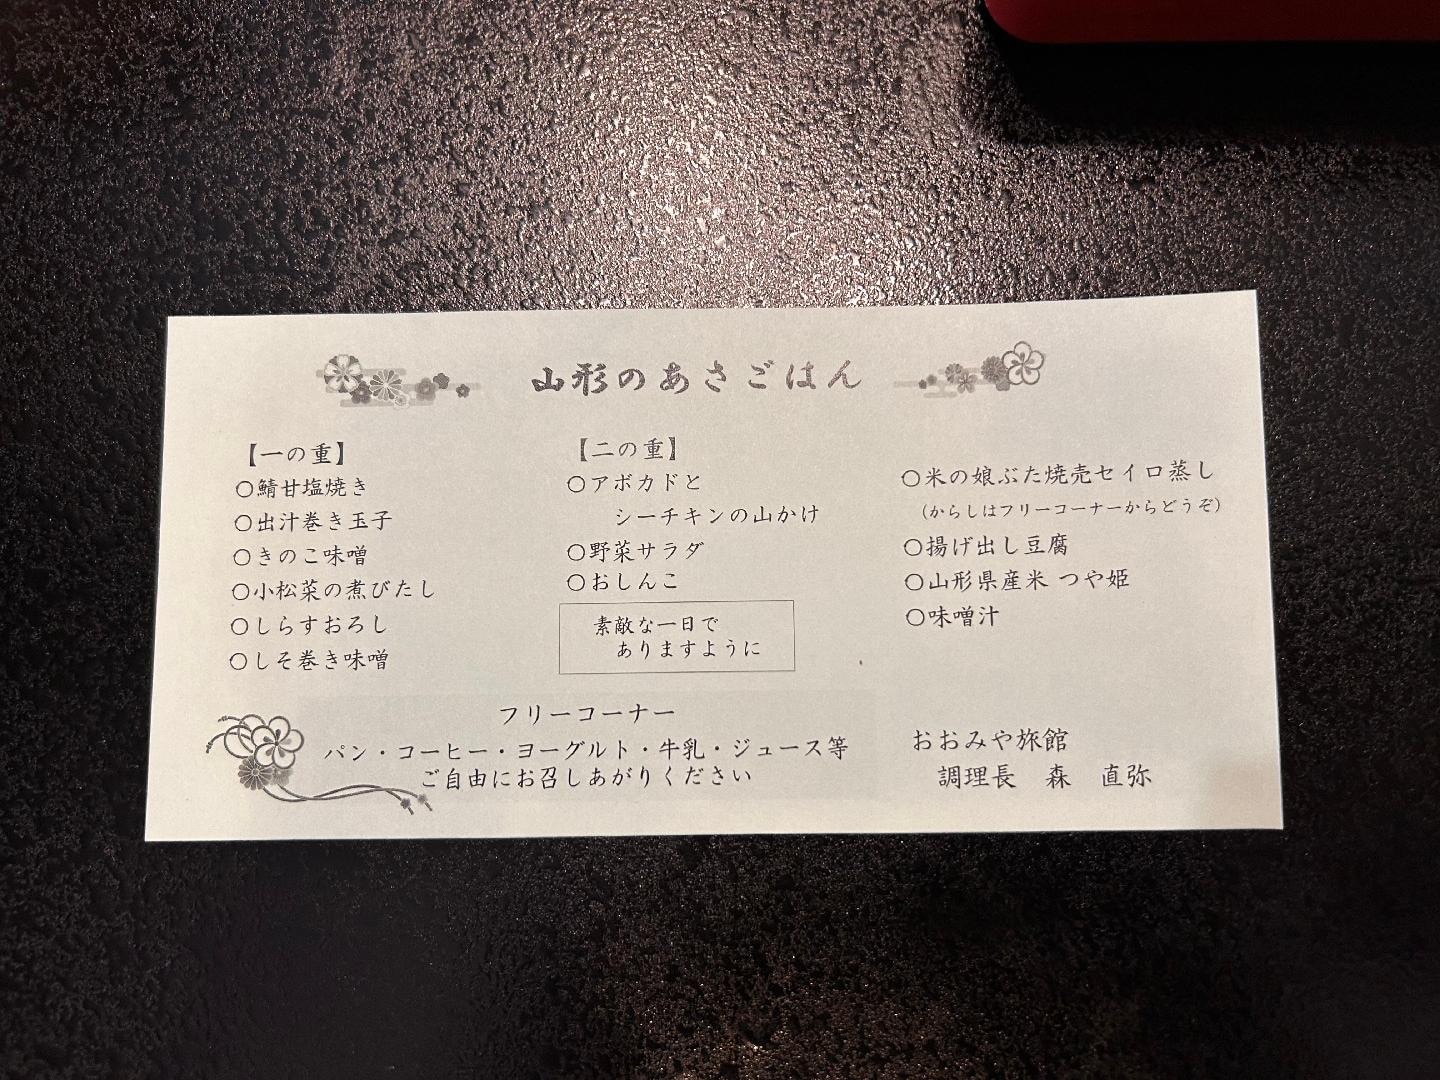 山形のあさごはん
【一の重】
〇鯖甘塩焼き
〇出汁巻き玉子
〇きのこ味噌
〇小松菜の煮びたし
〇しらすおろし
〇しそ巻き味噌
【二の重】
〇アボカドと
シーチキンの山かけ
〇野菜サラダ
〇おしんこ
素敵な一日で
ありますように
〇米の娘ぶた焼売セイロ蒸し
（からしはフリーコーナーからどうぞ）
〇揚げ出し豆腐
〇山形県産米 つや姫
〇味噌汁
フリーコーナー
パン・コーヒー・ヨーグルト・牛乳・ジュース等
ご自由にお召しあがりください
おおみや旅館
調理長　森　直弥